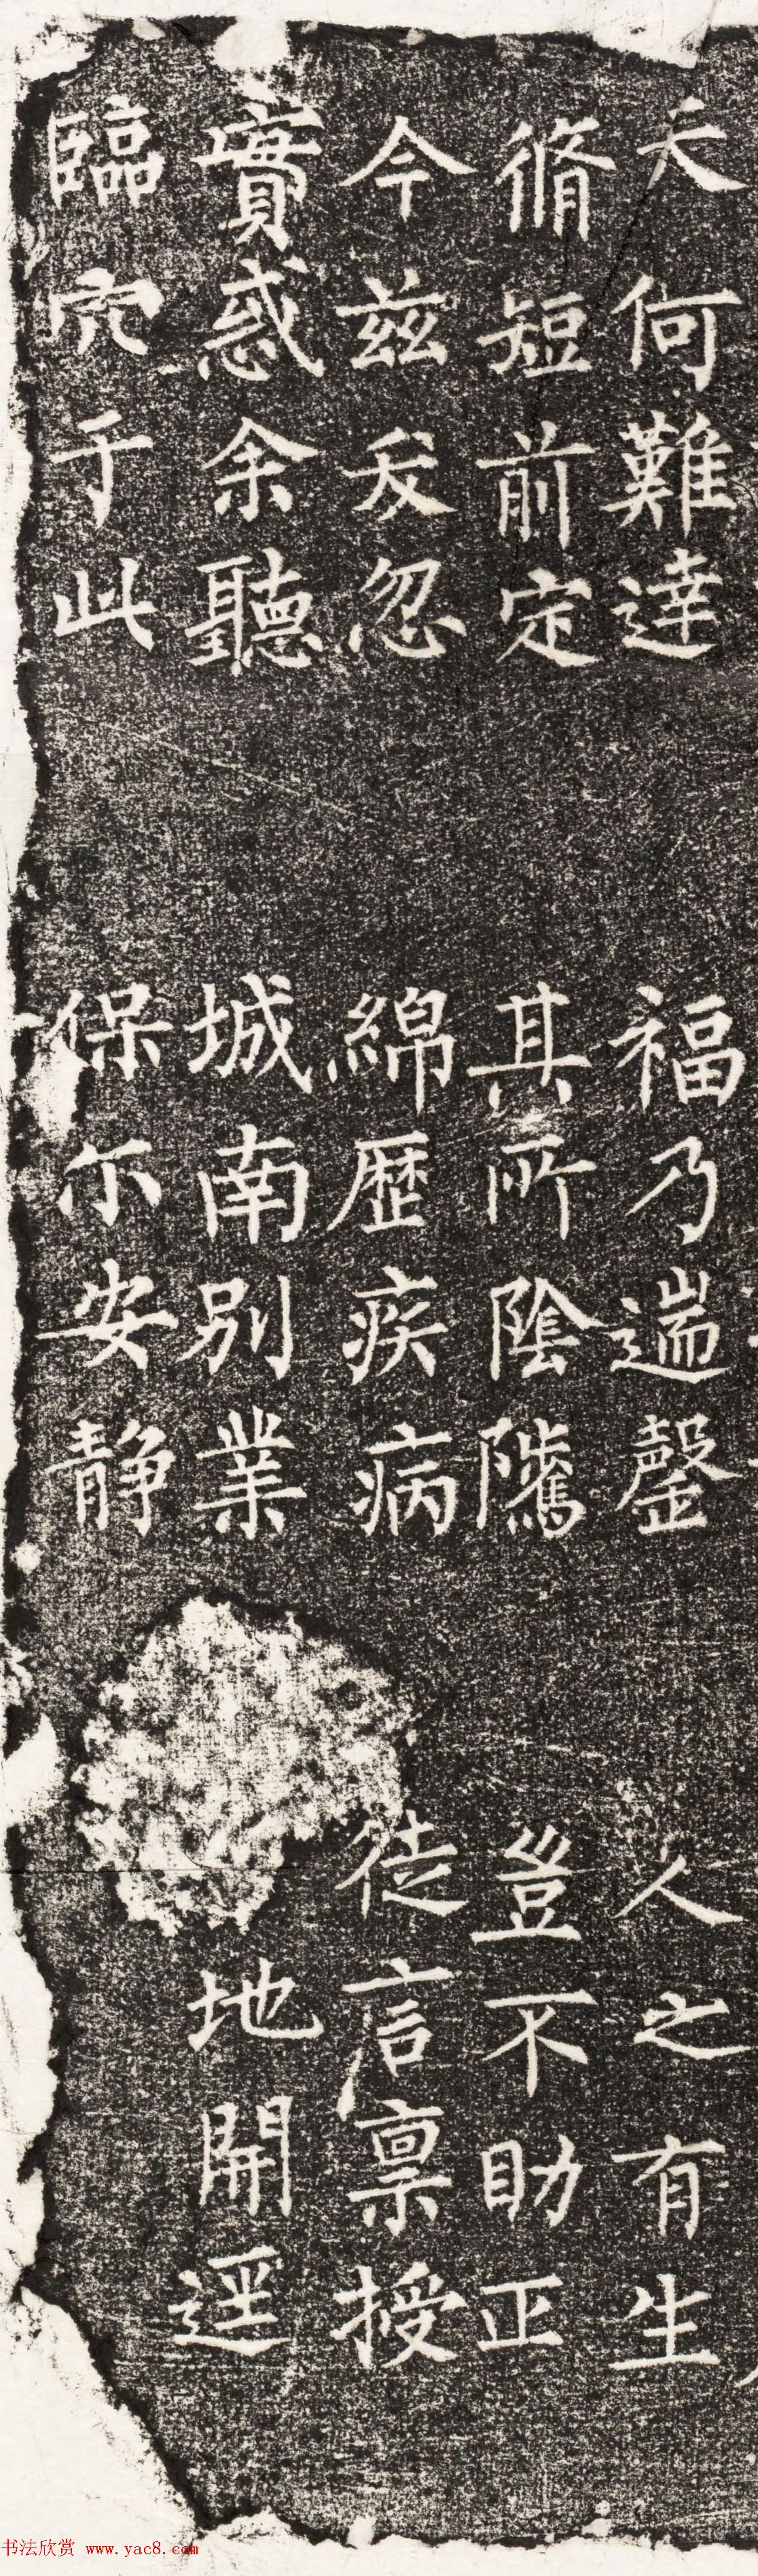 天何難達 福乃遄罄 人之有生
脩短前定 其所陰隲 豈不助正
今兹反忽 綿歷疾病 徒言稟授
實惑余聽 城南別業 地開逕
臨穴于此 保尓安静
书法欣赏 www.yac8.com